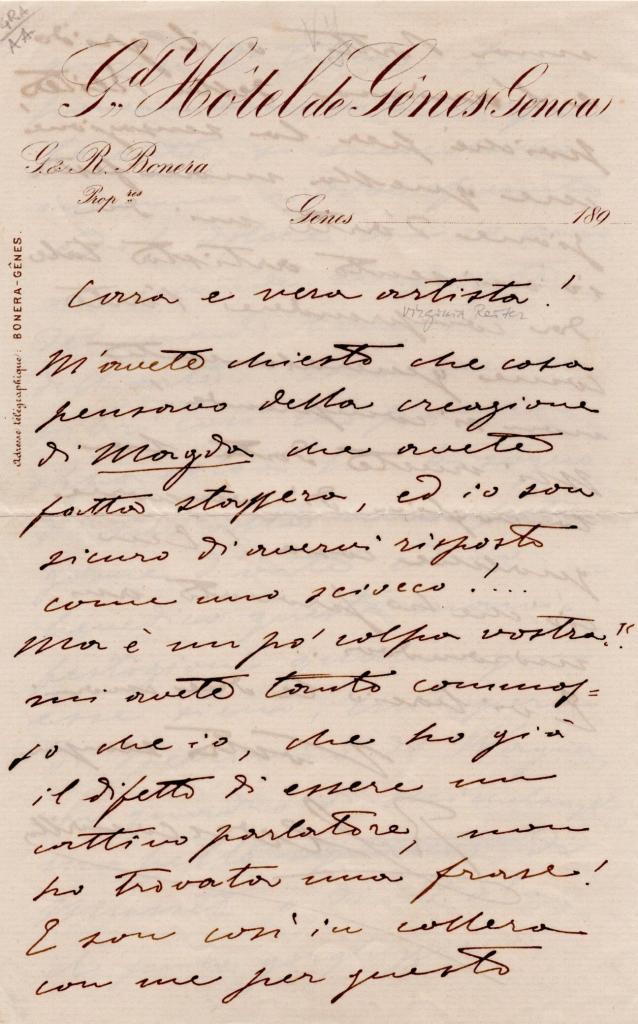 GRA
AA
Gd Hôtel de Gênes Genoa
G. & R. Bonera
Propres
Gênes 189
Adresse télégraphique: BONERA-GÊNES.
Cara e vera artista!
Virginia Reiter
M'avete chiesto che cosa
pensavo della creazione
di Magda che avete
fatta stassera, ed io son
sicuro di avervi risposto
come uno sciocco!...
Ma è un po' colpa vostra!!
mi avete tanto commos=
so che io, che ho già
il difetto di essere un
cattivo parlatore, non
ho trovata una frase!
E son così in collera
con me per questo